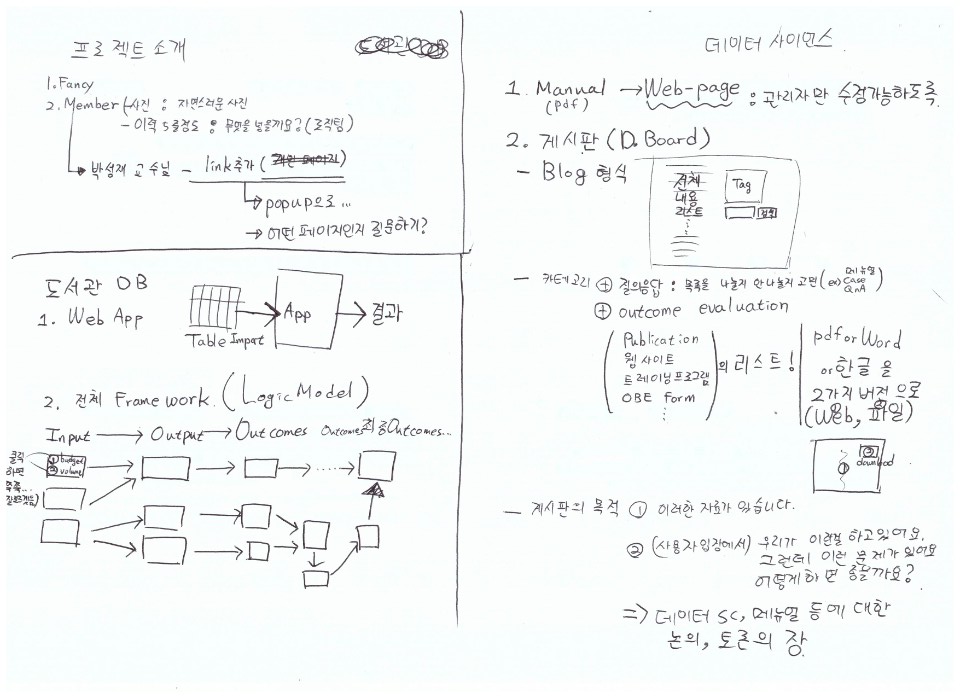 프로젝트 소개
1. Fancy
2. Member - 사진 : 자연스러운 사진
- 이력 5줄정도 : 무엇을 넣을까요? (조직팀)
박성재 교수님 - link추가 (개인 페이지)
popup으로...
→ 어떤 페이지인지 질문하기?
도서관 OB
1. Web App
Table Import
App
결과
2. 전체 Framework. (Logic Model)
Input → Output → Outcomes Outcomes 최종Outcomes...
클릭
하면
쭉쭉...
① budget
② volume
데이터 사이언스
1. Manual → Web-page : 관리자만 수정가능하도록.
(pdf)
2. 게시판 (D.Board)
- Blog 형식
전체
내용
리스트
Tag
검색
- 카테고리 + 질의응답 : 목록을 나눌지 안나눌지 고민 (ex) 메뉴얼
Case
QnA
+ outcome evaluation
Publication
웹사이트
트레이닝프로그램
OBE form
의 리스트!
pdf or Word
or 한글 을
2가지 버전으로
(Web, 파일)
①
②
download
- 게시판의 목적 ① 이러한 자료가 있습니다.
② (사용자입장에서) 우리가 이런걸 하고있어요.
그런데 이런 문제가 있어요
어떻게하면 좋을까요?
=> 데이터 SC, 메뉴얼 등에 대한
논의, 토론의 장.